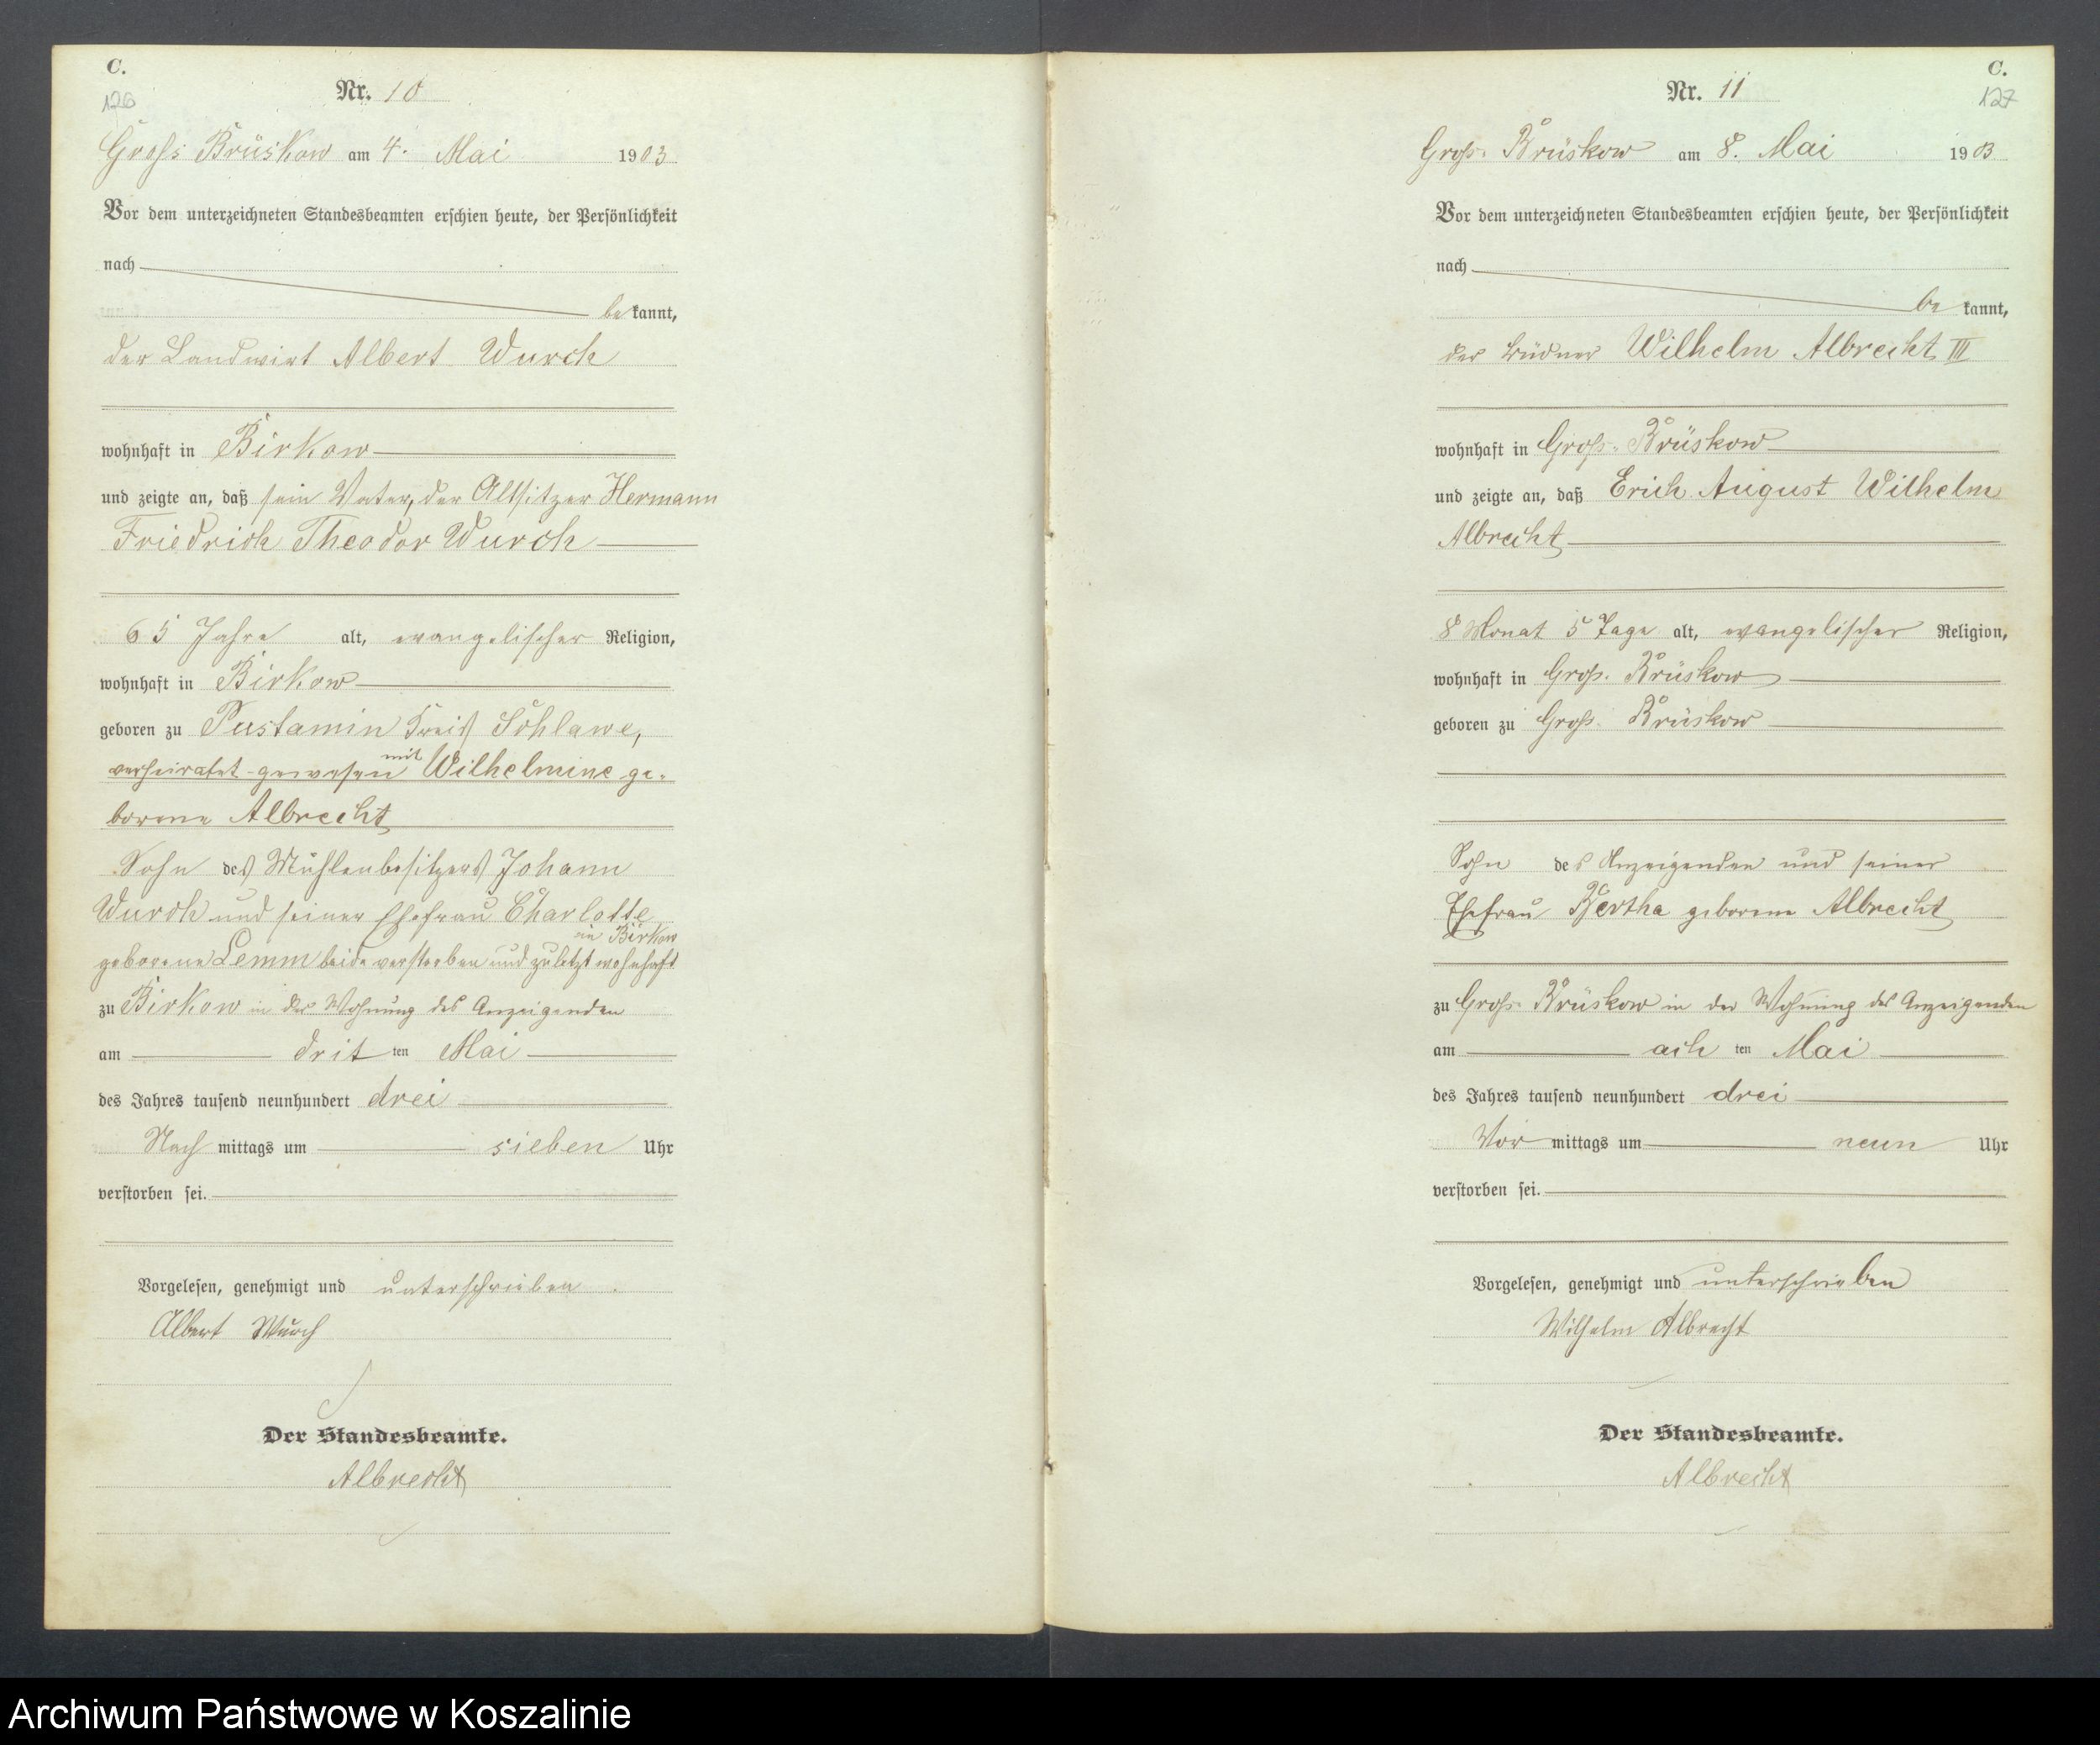 C.
126
Nr. 10
Groß Brüskow am 4. Mai 1903
Vor dem unterzeichneten Standesbeamten erschien heute, der Persönlichkeit
nach
be kannt,
der Landwirt Albert Wurch
wohnhaft in Birkow
und zeigte an, daß sein Vater, der Altsitzer Hermann
Friedrich Theodor Wurch
65 Jahre alt, evangelischer Religion,
wohnhaft in Birkow
geboren zu Pustamin Kreis Schlawe,
verheiratet gewesen mit Wilhelmine ge-
borene Albrecht
Sohn des Mühlenbesitzers Johann
Wurch und seiner Ehefrau Charlotte
geborene Lemm beide verstorben und zuletzt wohnhaft in Birkow
zu Birkow in der Wohnung des Anzeigenden
am dritten Mai
des Jahres tausend neunhundert drei
Nach mittags um sieben Uhr
verstorben sei.
Vorgelesen, genehmigt und unterschrieben
Albert Wurch
Der Standesbeamte.
Albrecht
C.
127
Nr. 11
Groß-Brüskow am 8. Mai 1903
Vor dem unterzeichneten Standesbeamten erschien heute, der Persönlichkeit
nach
be kannt,
der Büdner Wilhelm Albrecht III
wohnhaft in Groß-Brüskow
und zeigte an, daß Erich August Wilhelm
Albrecht
8 Monat 5 Tage alt, evangelischer Religion,
wohnhaft in Groß-Brüskow
geboren zu Groß-Brüskow
Sohn des Anzeigenden und seiner
Ehefrau Bertha geborene Albrecht
zu Groß-Brüskow in der Wohnung des Anzeigenden
am achten Mai
des Jahres tausend neunhundert drei
Vor mittags um neun Uhr
verstorben sei.
Vorgelesen, genehmigt und unterschrieben
Wilhelm Albrecht
Der Standesbeamte.
Albrecht
Archiwum Państwowe w Koszalinie